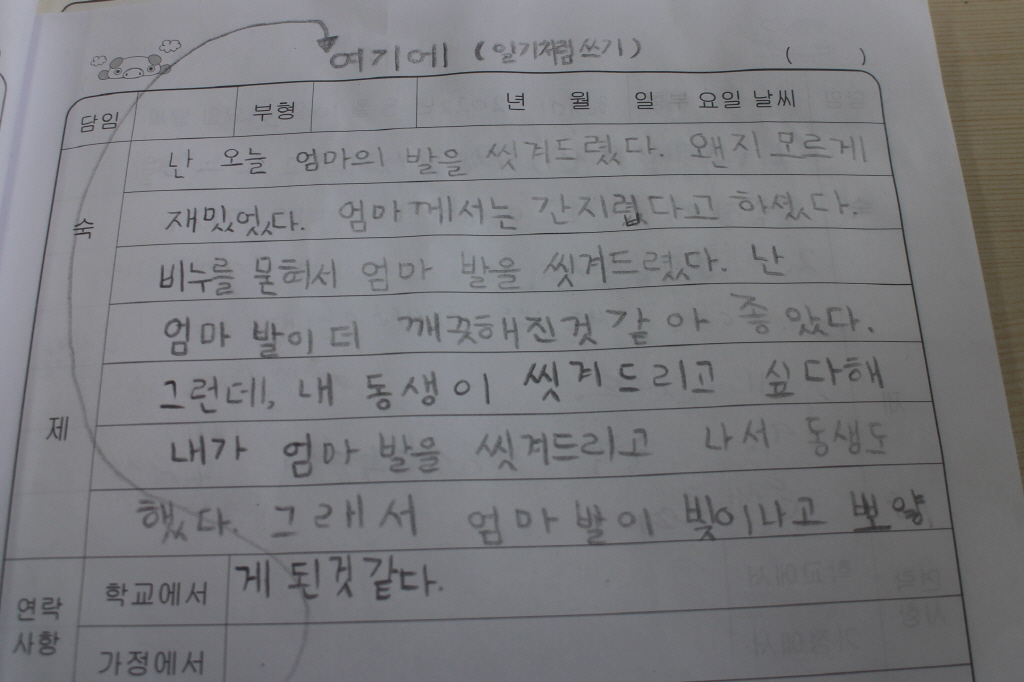 여기에 (일기처럼 쓰기) ( )
담임 부형 년 월 일 요일 날씨
난 오늘 엄마의 발을 씻겨드렸다. 왠지 모르게
재밌었다. 엄마께서는 간지럽다고 하셨다.
비누를 묻혀서 엄마 발을 씻겨드렸다. 난
엄마 발이 더 깨끗해진것 같아 좋았다.
그런데, 내 동생이 씻겨드리고 싶다해
내가 엄마 발을 씻겨드리고 나서 동생도
했다. 그래서 엄마 발이 빛이나고 뽀얗
게 된것 같다.
숙제
연락사항
학교에서
가정에서